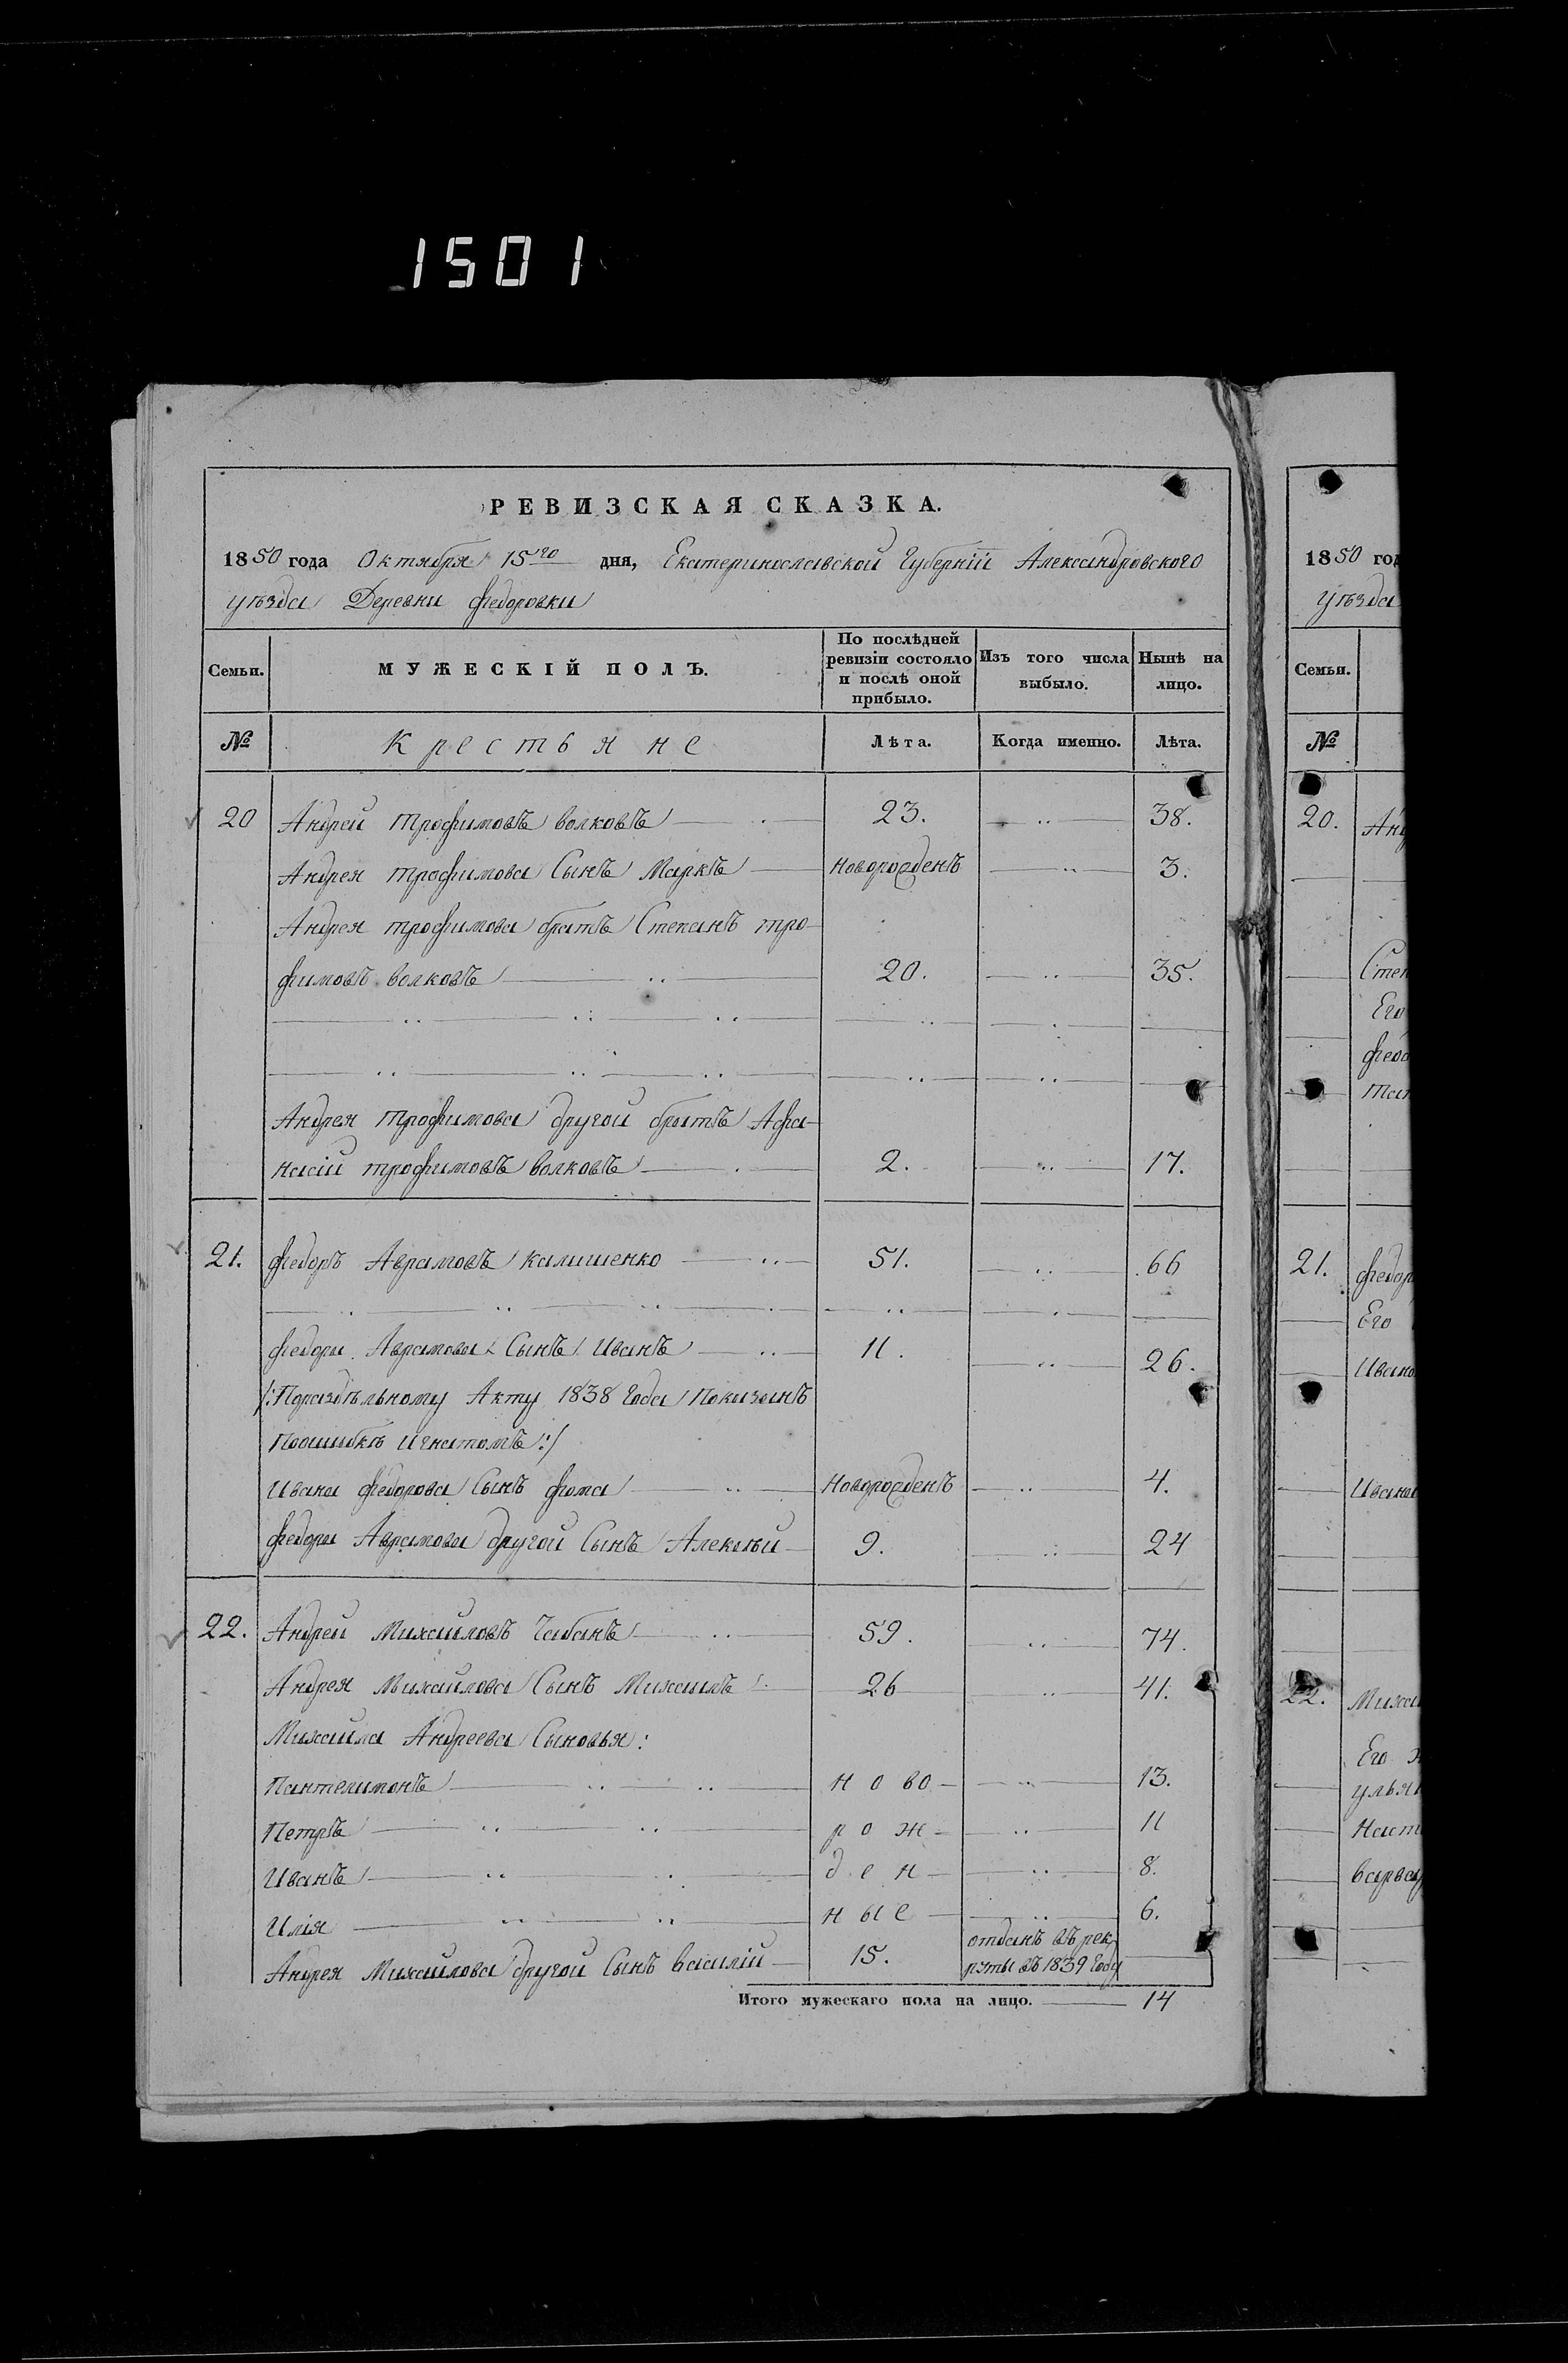 1501
РЕВИЗСКАЯ СКАЗКА.
1850 года Октября 15го дня, Екатеринославской Губерніи Александровского
уѣзда Деревни Федоровки
Семьи. МУЖЕСКІЙ ПОЛЪ. По послѣдней ревизіи состояло и послѣ оной прибыло. Изъ того числа выбыло. Нынѣ на лицо.
№ Крестьяне Лѣта. Когда именно. Лѣта.
20 Андрей Трофимовъ Волковъ 23. 38.
Андрея Трофимова Сынъ Маркъ Новорожденъ 3.
Андрея Трофимова братъ Степанъ Тро-
фимовъ Волковъ 20. 35.
Андрея Трофимова другой братъ Афа-
насій Трофимовъ Волковъ 2. 17.
21. Федоръ Аврамовъ 51. 66
Федора Аврамова Сынъ Иванъ 11. 26.
/:Пораздѣльному Акту 1838 года Показанъ
Поошибкѣ Игнатомъ:/
Ивана Федорова Сынъ Фома Новорожденъ 4.
Федора Аврамова другой Сынъ Алексѣй 9. 24
22. Андрей Михайловъ Чабанъ 59. 74.
Андрея Михайлова Сынъ Михаилъ 26 41.
Михаила Андреева Сыновья:
Пантелимонъ ново- 13.
Петръ рож- 11
Иванъ ден- 8.
Илія ные 6.
Андрея Михайлова другой Сынъ Василій 15. отданъ въ рек
руты въ 1839 Году
Итого мужескаго пола на лицо. 14
1850 год
уѣзда
Семьи.
№
20. Анд
Степ
Его
Федо
Тат
21. Федор
Его
Ивано
Иванов
22. Миха
Его ж
Улья
Наст
Варва